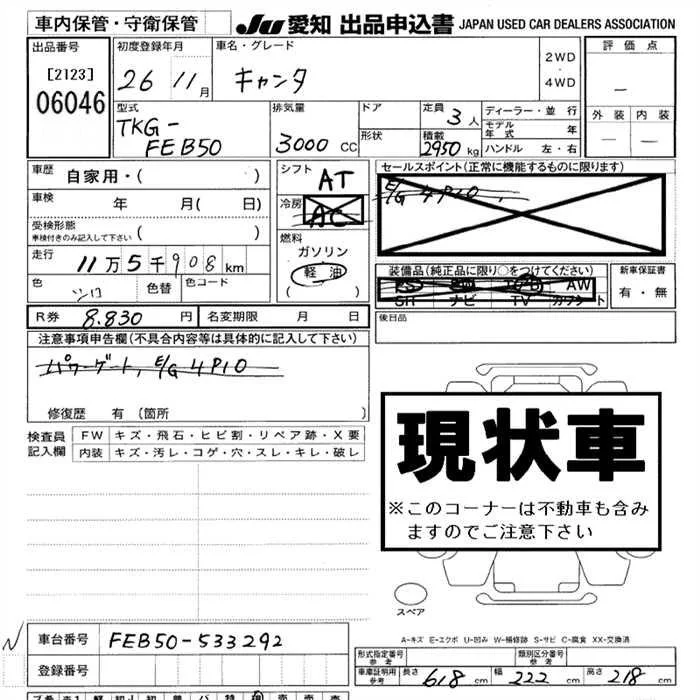 車内保管・守衛保管 JU 愛知 出品申込書 JAPAN USED CAR DEALERS ASSOCIATION
出品番号 初度登録年月 車名・グレード 2WD ・ 4WD 評価点
[2123] 26 11月 キャンタ —
06046 型式 排気量 ドア 定員 3人 ディーラー・並行 外装 内装
TKG- モデル年式 年
FEB50 3000 CC 形状 積載 2950 kg ハンドル 左・右 — —
車歴 自家用・( ) シフト AT セールスポイント(正常に機能するものに限ります)
車検 年 月( 日) 冷房 AC E/G 4P10,
受検形態 車検付きのみ記入して下さい ( ) 燃料 ガソリン
走行 11万5千908km 軽油 装備品(純正品に限り○をつけてください) 新車保証書
色 シロ 色替 色コード ( ) PS PW AB AW 有・無
SR ナビ TV カワシート
R券 8.830 円 名変期限 月 日 後日品
注意事項申告欄(不具合内容等は具体的に記入して下さい)
パワーゲート, E/G 4P10
修復歴 有 (箇所 )
検査員記入欄 FW キズ・飛石・ヒビ割・リペア跡・X要
内装 キズ・汚レ・コゲ・穴・スレ・キレ・破レ
現状車
※このコーナーは不動車も含み
ますのでご注意下さい
スペア
A-キズ E-エクボ U-凹み W-補修跡 S-サビ C-腐食 XX-交換済
車台番号 FEB50-533292
登録番号
型式指定番号 参考 類別区分番号 参考
車庫証明用 参考 長さ 618 cm 幅 222 cm 高さ 218 cm